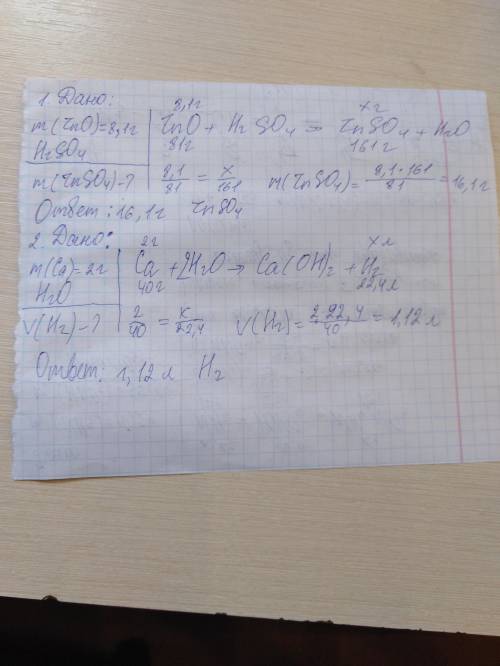 1. Дано:
m(ZnO)=8,1г
H₂SO₄
m(ZnSO₄)-?
8,1г xг
ZnO + H₂SO₄ = ZnSO₄ + H₂O
81г 161г
8,1/81 = x/161 m(ZnSO₄)= 8,1·161/81 =16,1г
Ответ: 16,1г ZnSO₄
2. Дано:
m(Ca)=2г
H₂O
V(H₂)-?
2г xл
Ca +2H₂O → Ca(OH)₂ + H₂
40г 22,4л
2/40 = x/22,4 V(H₂)= 2·22,4/40 =1,12л
Ответ: 1,12л H₂